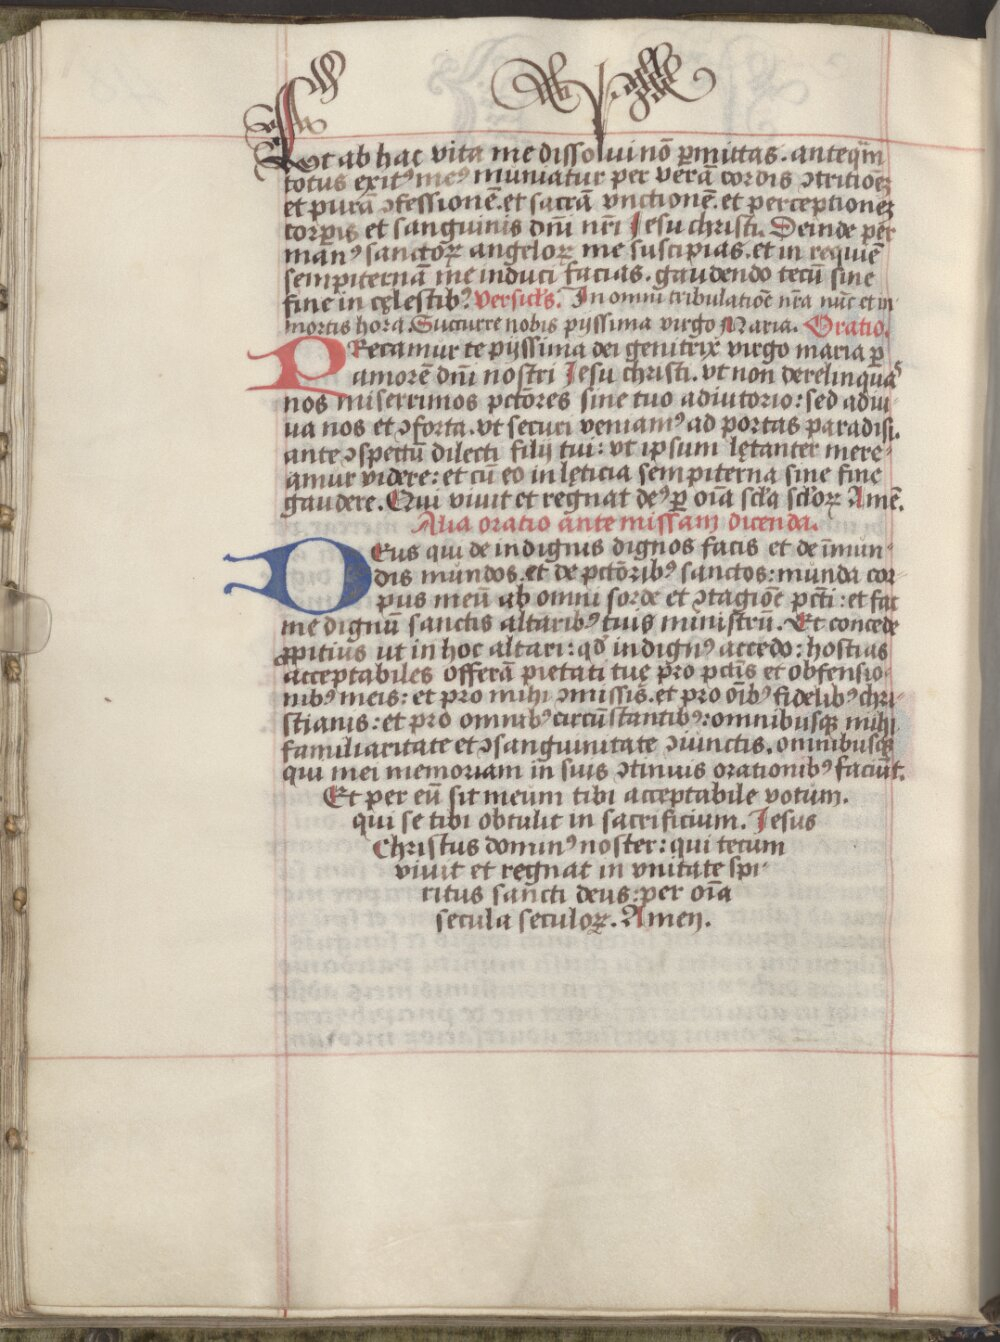 Vt ab hac vita me dissolui nō ꝑmittas. anteq̄m
totus exitꝰ meꝰ muniatur per verā cordis ↄtritionēꝫ
et purā ↄfessionē. et sacrā vnctionē. et perceptionēꝫ
corꝑis et sanguinis dn̄i nr̄i Jesu christi. Deinde per
manꝰ sanctoꝝ angeloꝝ me suscipias. et in requiē
sempiternā me induci facias. gaudendo tecū sine
fine in cęlestibꝰ. Versicl's. In omni tribulatiōe nr̄a nūc et in
mortis hora Succurre nobis pijssima virgo Maria. Oratio.
PRecamur te pijssima dei genitrix virgo maria ꝑ
amorē dn̄i nostri Jesu christi. vt non derelinquas
nos miserrimos pctōres sine tuo adiutorio: sed adiu-
ua nos et ↄforta. vt securi veniamꝰ ad portas paradisi.
ante ↄspectū dilecti filij tui: vt ipsum lętanter mere-
amur videre: et cū eo in lęticia sempiterna sine fine
gaudere. Qui viuit et regnat deꝰ ꝑ oīa scl'a scl'oꝝ Amē.
Alia oratio ante missam dicenda.
DEus qui de indignis dignos facis et de īmun-
dis mundos. et de pctōribꝰ sanctos: munda cor-
pus meū ab omni sorde et ↄtagiōe pcti: et fac
me dignū sanctis altaribꝰ tuis ministrū. Et concede
ꝓpitius ut in hoc altari: qd̄ indignꝰ accedo: hostias
acceptabiles offerā pietati tuę pro pctīs et obfensio-
nibꝰ meis: et pro mihi ↄmissis. et pro oībꝰ fidelibꝰ chri-
stianis: et pro omnibꝰ circūstantibꝰ: omnibusqꝫ mihi
familiaritate et ↄsanguinitate ↄiunctis. omnibusqꝫ
qui mei memoriam in suis ↄtinuis orationibꝰ faciūt.
Et per eū sit meum tibi acceptabile votum.
qui se tibi obtulit in sacrificium. Jesus
Christus dominꝰ noster: qui tecum
viuit et regnat in vnitate spi-
ritus sancti deus: per oīa
secula seculoꝝ. Amen.